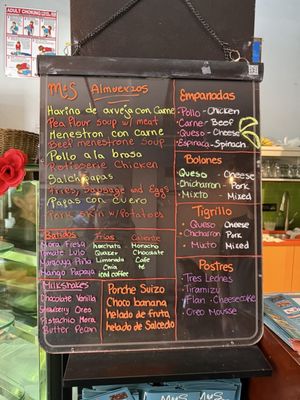 ADULT CHOKING
M&S Almuerzos
Harina de arveja con Carne
Pea Flour soup w/ meat
Menestron con Carne
Beef menestrone Soup
Pollo a la brosa
Rotisserie Chicken
Salchipapas
Fries, Sausage and Eggs
Papas con cuero
Pork skin w/ Potatoes
Batidos
Mora Fresa
Tomate Lulo
Maracuya Piña
Mango Papaya
Frias
horchata
Quaker
Limonada
Chia
iced coffee
Caliente
Morocho
Chocolate
Cafe
té
Milkshakes
Chocolate Vanilla
Strawberry Oreo
Pistachio Mora
Butter Pecan
Porche Suizo
Choco banana
helado de fruta
helado de Salcedo
Empanadas
Pollo - Chicken
Carne - Beef
Queso - Cheese
Espinaca - Spinach
Bolones
Queso - Cheese
Chicharon - Pork
Mixto - Mixed
Tigrillo
Queso Cheese
Chicharon Pork
Mixto Mixed
Postres
Tres Leches
Tiramizu
Flan - Cheesecake
Oreo Mousse